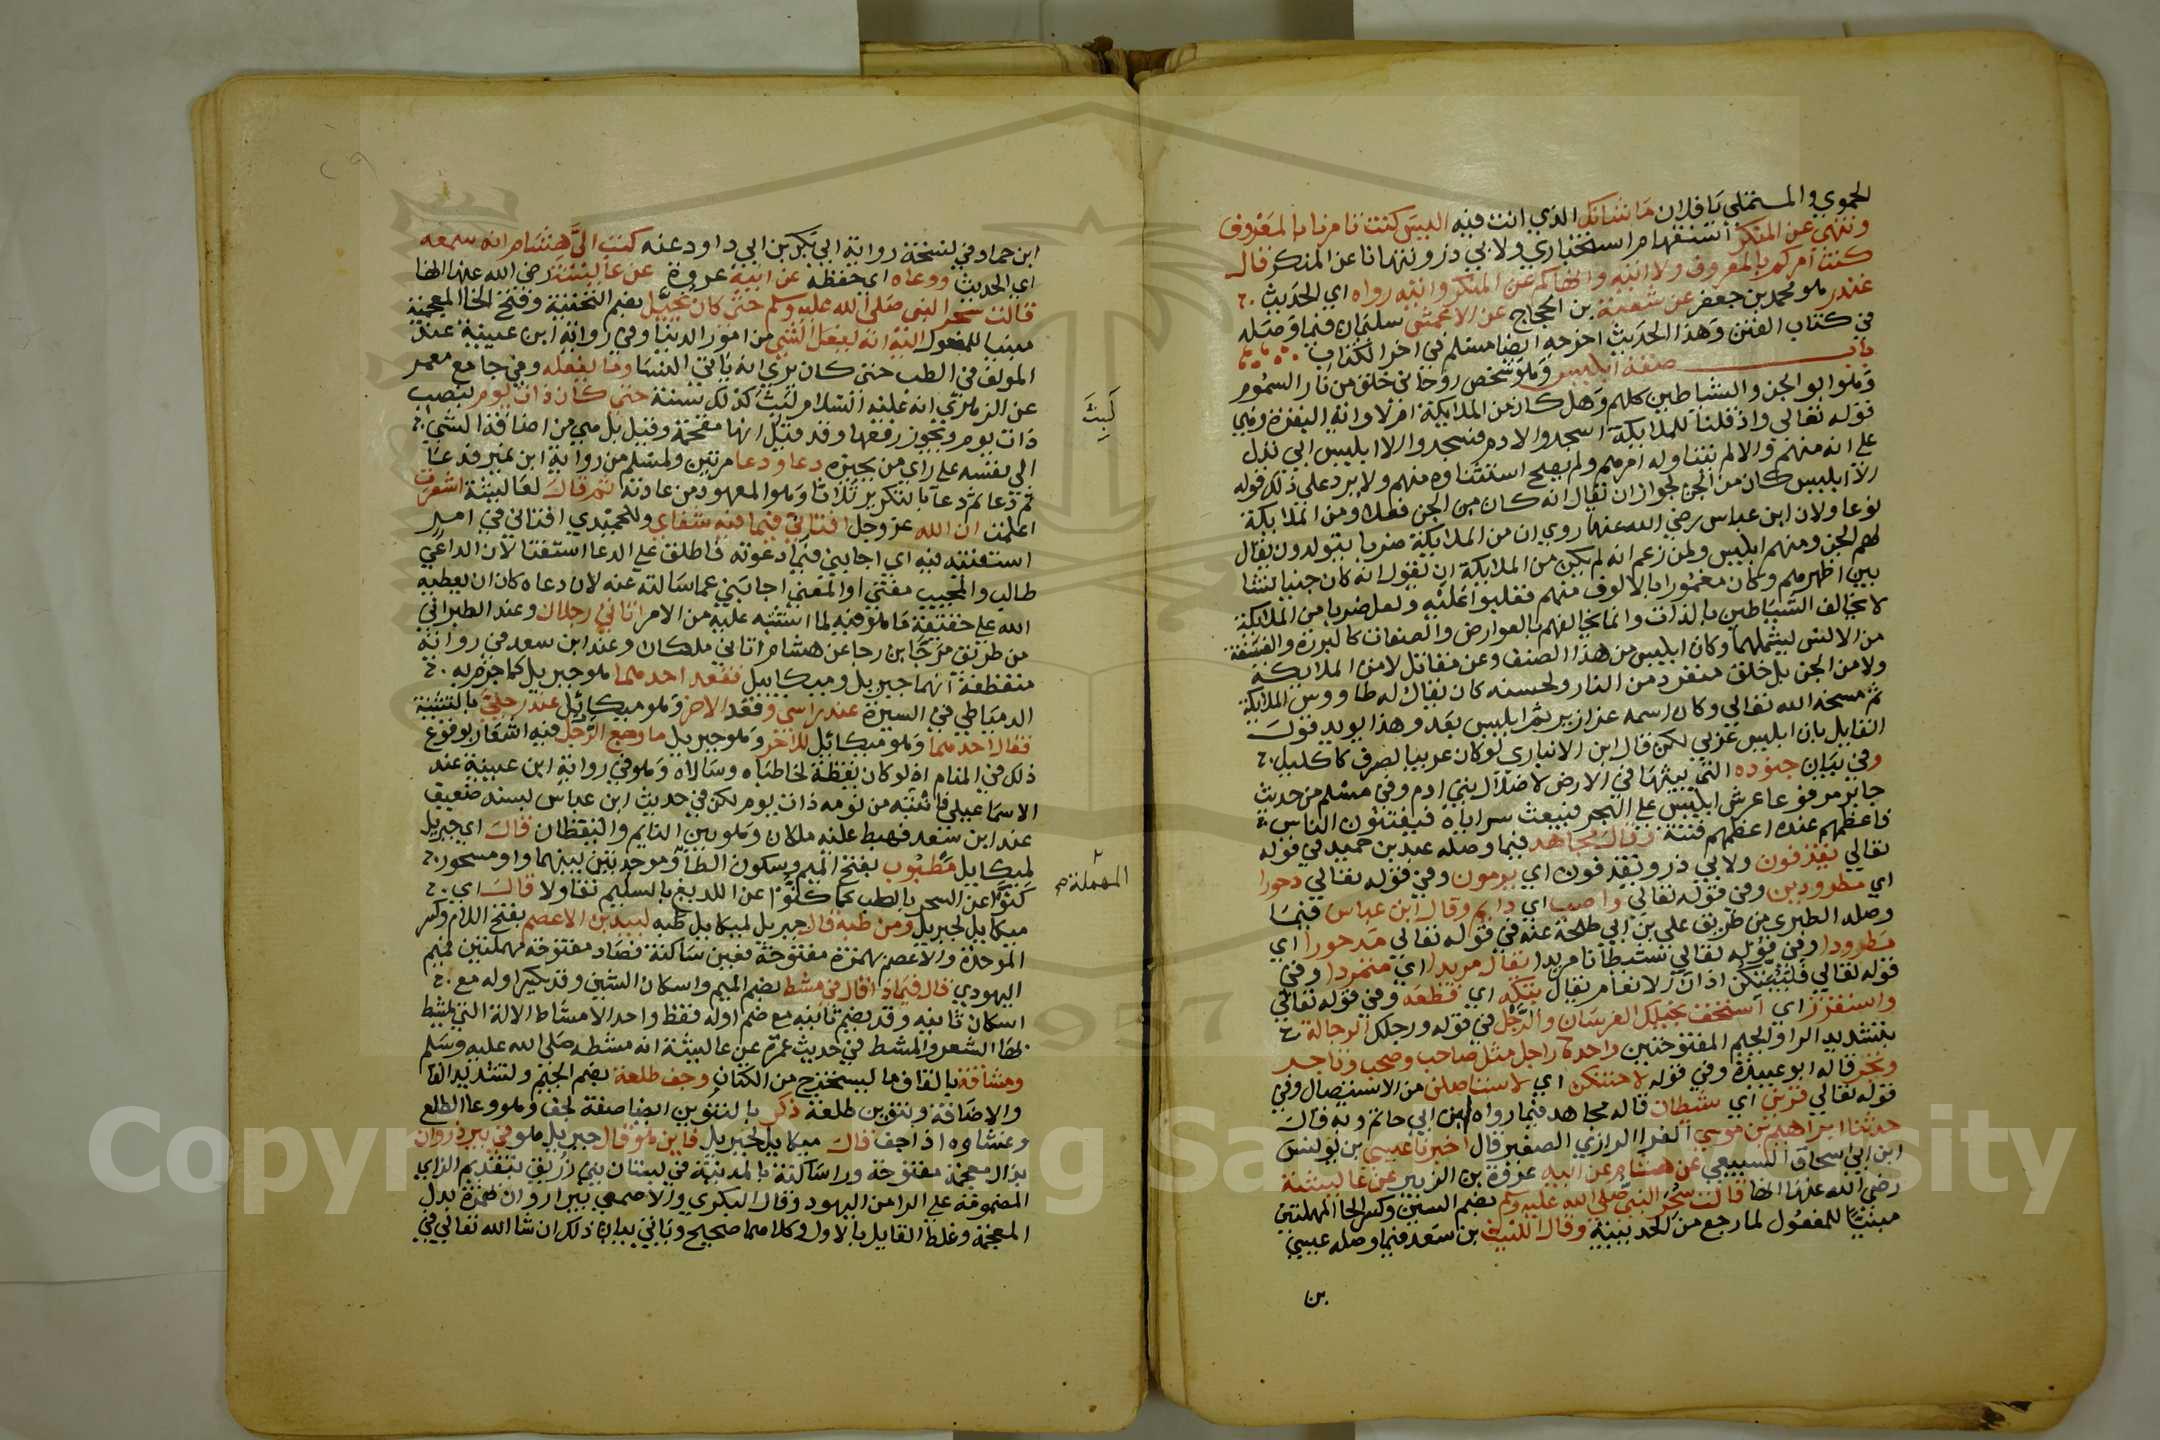 الحموي والمستملي يا فلان ما شانك الذي انت فيه اليس كنت تامرنا بالمعروف
وتنهى عن المنكر استفهام استخباري ولابي ذر وتنهانا عن المنكر قال
كنت آمركم بالمعروف ولا آتيه وانهاكم عن المنكر وآتيه رواه اي الحديث
غندر وهو محمد بن جعفر عن شعبة بن الحجاج عن الاعمش سليمان فيما وصله
في كتاب الفتن وهذا الحديث اخرجه ايضا مسلم في اخر الكتاب
باب صفة ابليس وهو شخص روحاني خلق من نار السموم
وهو ابو الجن والشياطين كلهم وهل كان من الملايكة ام لا واية البقرة وهي
قوله تعالى واذ قلنا للملايكة اسجدوا لادم فسجدوا الا ابليس ابى تدل
على انه منهم والا لم يتناوله امرهم ولم يصح استثناوه منهم ولا يرد على ذلك قوله
الا ابليس كان من الجن لجواز ان يقال انه كان من الجن فعلا ومن الملايكة
نوعا ولان ابن عباس رضي الله عنهما روي ان من الملايكة ضربا يتوالدون يقال
لهم الجن ومنهم ابليس ولمن زعم انه لم يكن من الملايكة ان يقول انه كان جنيا نشا
بين اظهرهم وكان مغمورا بالالوف منهم فغلبوا عليه ولعل ضربا من الملايكة
لا يخالف الشياطين بالذات وانما يخالفهم بالعوارض والصفات كالبررة والفسقة
من الانس يشملهما وكان ابليس من هذا الصنف وعن مقاتل لا من الملايكة
ولا من الجن بل خلق منفردا من النار ولحسنه كان يقال له طاووس الملايكة
ثم مسخه الله تعالى وكان اسمه عزازير ثم ابليس بعد وهذا يويد قول
القايل بان ابليس عربي لكن قال ابن الانباري لو كان عربيا لصرف كاكليل
وفي بيان جنوده التي يبثها في الارض لاضلال بني ادم وفي مسلم من حديث
جابر مرفوعا عرش ابليس على البحر فيبعث سراياه فيفتنون الناس
فاعظمهم عنده اعظمهم فتنة وقال مجاهد فيما وصله عبد بن حميد في قوله
تعالى يقذفون ولابي ذر ويقذفون اي يرمون وفي قوله تعالى دحورا
اي مطرودين وفي قوله تعالى واصب اي دايم وقال ابن عباس فيما
وصله الطبري من طريق علي بن ابي طلحة عنه في قوله تعالى مدحورا اي
مطرودا وفي قوله تعالى شيطانا مريدا يقال مريدا اي متمردا وفي
قوله تعالى فليبتكن اذان الانعام يقال بتكه اي قطعه وفي قوله تعالى
واستفزز اي استخف بخيلك الفرسان والرجل في قوله ورجلك الرجالة
بتشديد الرا والجيم المفتوحتين واحدها راجل مثل صاحب وصحب وتاجر
وتجر قاله ابو عبيدة وفي قوله لاحتنكن اي لاستاصلن من الاستيصال وفي
قوله تعالى قرين اي شيطان قاله مجاهد فيما رواه ابن ابي حاتم وبه قال
حدثنا ابراهيم بن موسي الفرا الرازي الصغير قال اخبرنا عيسى بن يونس
ابن ابي اسحاق السبيعي عن هشام عن ابيه عروة بن الزبير عن عايشة
رضي الله عنها انها قالت سحر النبي صلى الله عليه وسلم بضم السين وكسر الحا المهملتين
مبنيا للمفعول لما رجع من الحديبية وقال الليث بن سعد فيما وصله عيسى
بن
ابن حماد في نسخة رواية ابي بكر بن ابي داود عنه كتب الي هشام انه سمعه
اي الحديث ووعاه اي حفظه عن ابيه عروة عن عايشة رضي الله عنها انها
قالت سحر النبي صلى الله عليه وسلم حتى كان يخيل بضم التحتية وفتح الخا المعجمة
مبنيا للمفعول اليه انه يفعل الشي من امور الدنيا وفي رواية ابن عيينة عند
المولف في الطب حتى كان يرى انه ياتي النسا وما يفعله وفي جامع معمر
عن الزهري انه عليه السلام لبث كذلك سنة حتى كان ذات يوم بنصب
ذات يوم ويجوز رفعها وقد قيل انها مقحمة وقيل بل هي من اضافة الشي
الى نفسه على راي من يجيزه دعا ودعا مرتين ولمسلم من رواية ابن نمير فدعا
ثم دعا ثم دعا بالتكرير ثلاثا وهو المعهود من عادته ثم قال لعايشة اشعرت
اعلمت ان الله عز وجل افتاني فيما فيه شفاي وللحميدي افتاني في امر
استفتيته فيه اي اجابني فيما دعوته فاطلق على الدعا استفتا لان الداعي
طالب والمجيب مفتي او المعنى اجابني عما سالته عنه لان دعاه كان ان يطلعه
الله على حقيقة ما هو فيه لما اشتبه عليه من الامر اتاني رجلان وعند الطبراني
من طريق مرجا بن رجا عن هشام اتاني ملكان وعند ابن سعد في رواية
منقطعة انهما جبريل وميكاييل فقعد احدهما هو جبريل كما جزم به
الدمياطي في السيرة عند راسي وقعد الاخر وهو ميكائيل عند رجلي بالتثنية
فقال احدهما وهو ميكائيل للاخر وهو جبريل ما وجع الرجل فيه اشعار بوقوع
ذلك في المنام اذ لو كان يقظة لخاطباه وسالاه وهو في رواية ابن عيينة عند
الاسماعيلي فانتبه من نومه ذات يوم لكن في حديث ابن عباس بسند ضعيف
عند ابن سعد فهبط عليه ملكان وهو بين النايم واليقظان قال اي جبريل
لميكاييل مطبوب بفتح الميم وسكون الطا وموحدتين بينهما واو مسحور
كنوا عن السحر بالطب كما كنوا عن اللديغ بالسليم تفاولا قال اي
ميكاييل لجبريل ومن طبه قال جبريل لميكاييل طبه لبيد بن الاعصم بفتح اللام وكسر
الموحدة والاعصم بهمزة مفتوحة فعين ساكنة فصاد مفتوحة مهملتين فميم
اليهودي قال فيما ذا قال في مشط بضم الميم واسكان الشين وقد يكسر اوله مع
اسكان ثانيه وقد يضم ثانيه مع ضم اوله فقط واحد الامشاط الالة التي يمشط
بها الشعر والمشط في حديث عمرة عن عايشة انه مشطه صلى الله عليه وسلم
ومشاقة بالقاف ما يستخرج من الكتان وجف طلعة بضم الجيم وتشديد الفا
والاضافة وتنوين طلعة ذكر بالتنوين ايضا صفة لجف وهو وعا الطلع
وغشاوه اذا جف قال ميكاييل لجبريل فاين هو قال جبريل هو في بير ذروان
بذال معجمة مفتوحة ورا ساكنة بالمدينة في بستان بني زريق بتقديم الزاي
المضمومة على الرا من اليهود وقال البكري والاصمعي بير اروان بهمزة بدل
المعجمة وغلط القايل بالاول وكلاهما صحيح وياتي بيان ذلك ان شا الله تعالى في
لبث
المهملة
Copyright King Saud University
1957